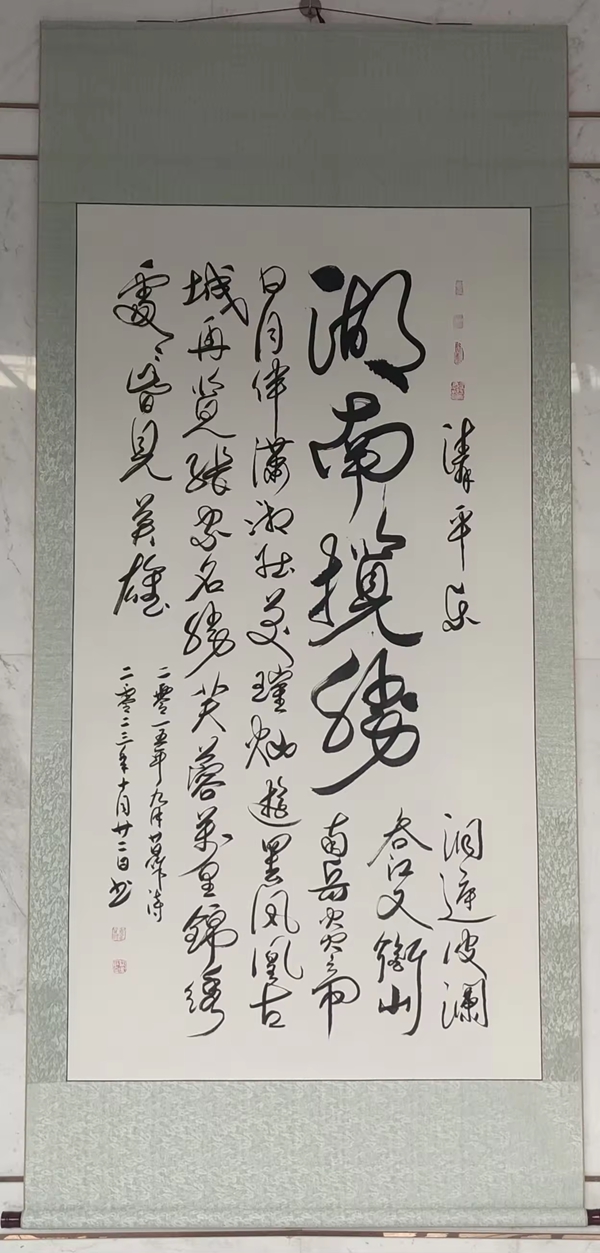 清平乐
洞庭波澜
湖南揽胜
春江又衡山
南岳
日月伟潇湘壮美璀灿游罢凤凰古
城再览张家名胜芙蓉万里锦绣
处处皆见英雄
二零一五年九月作诗
二零二三年十月廿二日书